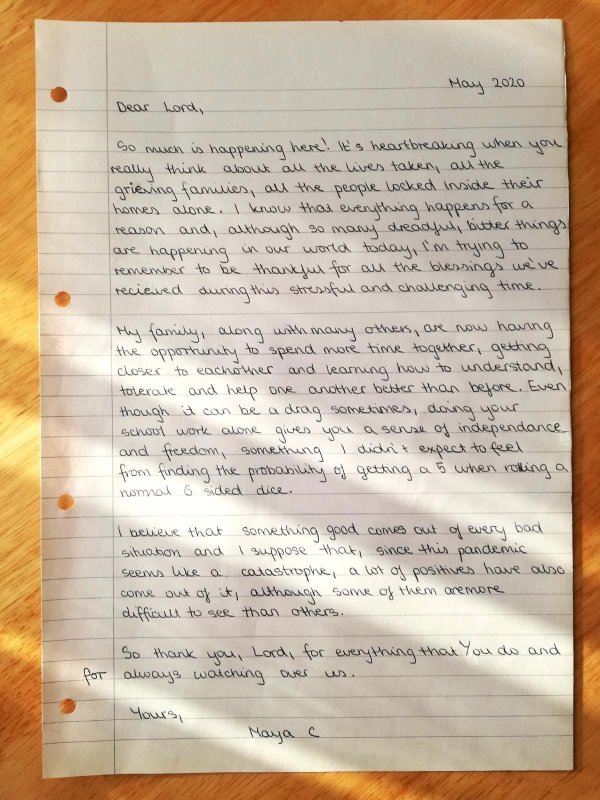 May 2020
Dear Lord,
So much is happening here! It's heartbreaking when you
really think about all the lives taken, all the
grieving families, all the people locked inside their
homes alone. I know that everything happens for a
reason and, although so many dreadful, bitter things
are happening in our world today, I'm trying to
remember to be thankful for all the blessings we've
recieved during this stressful and challenging time.
My family, along with many others, are now having
the opportunity to spend more time together, getting
closer to eachother and learning how to understand,
tolerate and help one another better than before. Even
though it can be a drag sometimes, doing your
school work alone gives you a sense of independance
and freedom, something I didn't expect to feel
from finding the probability of getting a 5 when rolling a
normal 6 sided dice.
I believe that something good comes out of every bad
situation and I suppose that, since this pandemic
seems like a catastrophe, a lot of positives have also
come out of it, although some of them are more
difficult to see than others.
So thank you, Lord, for everything that You do and
for always watching over us.
Yours,
Maya C